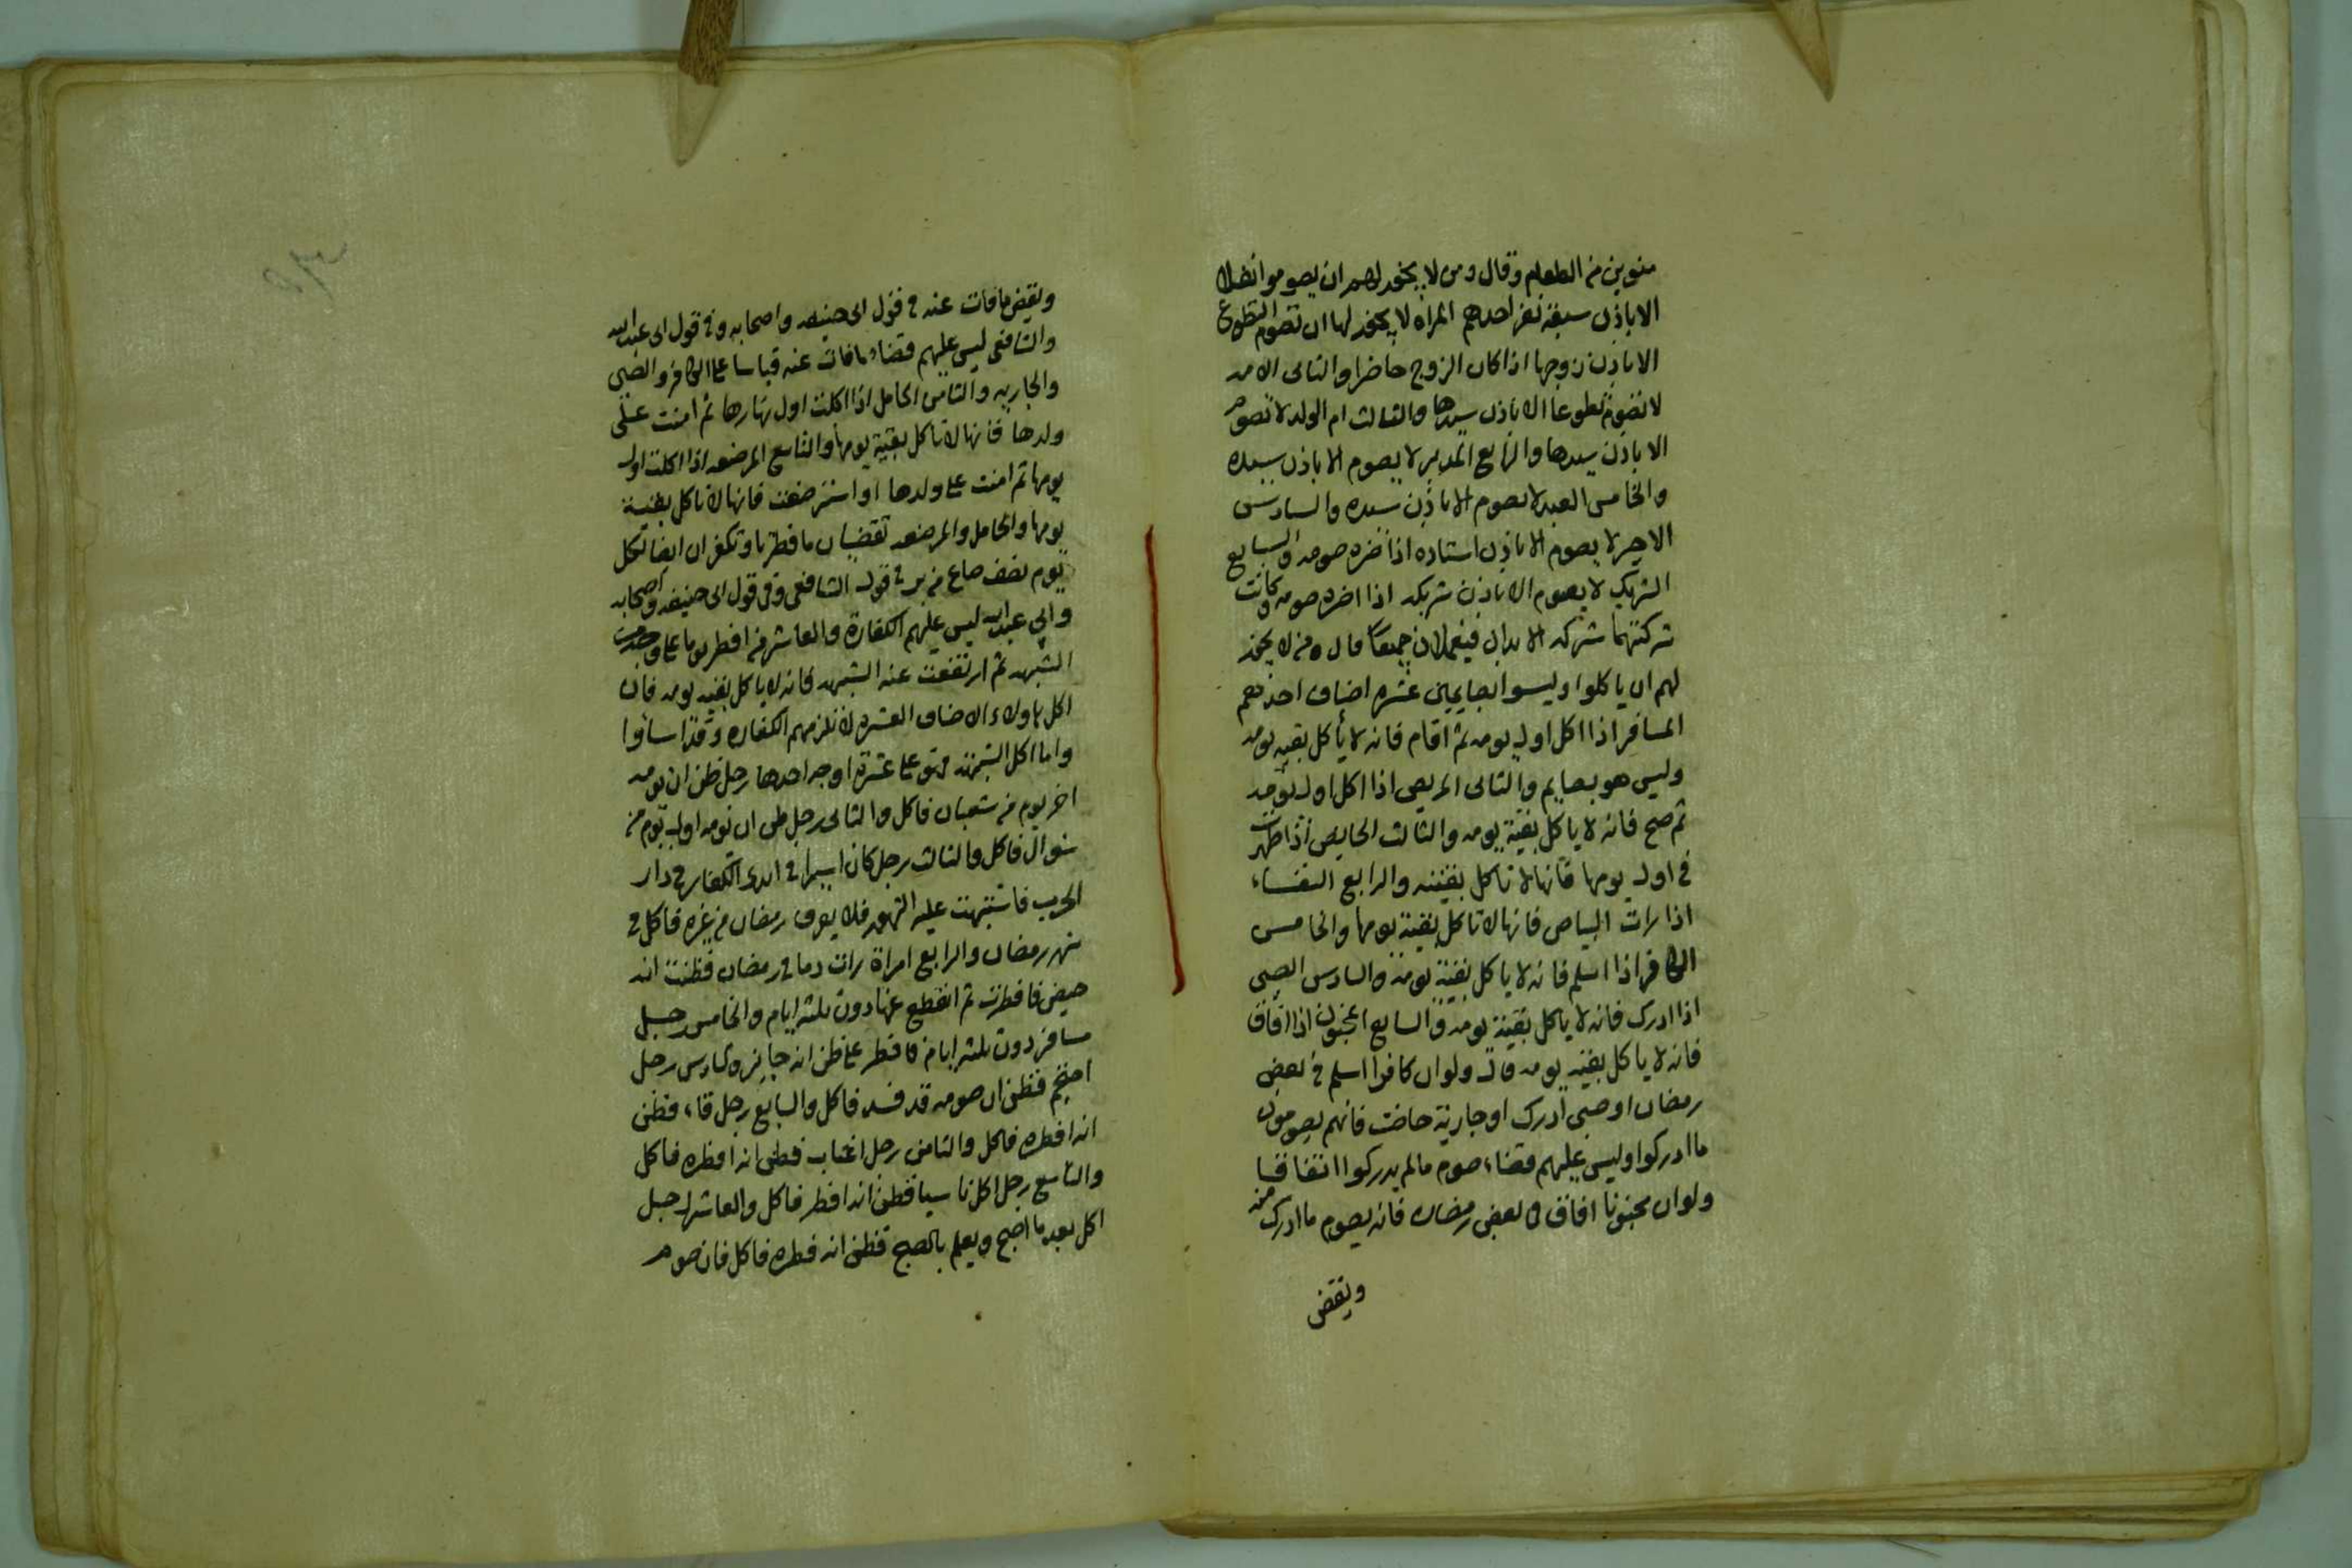 منوين من الطعام وقال ومن لا يجوز لهم ان يصوموا نفلا
الا باذن سبعة نفر احدهم المراة لا يجوز لها ان تصوم التطوع
الا باذن زوجها اذا كان الزوج حاضرا والثانى الامه
لا تصوم تطوعا الا باذن سيدها والثالث ام الولد لا تصوم
الا باذن سيدها والرابع المدبر لا يصوم الا باذن سيده
والخامس العبد لا يصوم الا باذن سيده والسادس
الاجير لا يصوم الا باذن استاده اذا ضره صومه والسابع
الشريك لا يصوم الا باذن شريكه اذا اضره صومه وكانت
شركتهما شركه الابدان فيعملان جميعا قال ومن لا يجوز
لهم ان ياكلوا وليسوا بصايمين عشره اصناف احدهم
المسافر اذا اكل اول يومه ثم اقام فانه لا يأكل بقيه يومه
وليس هو بصايم والثانى المريض اذا اكل اول يومه
ثم صح فانه لا ياكل بقية يومه والثالث الحايض اذا طهرت
فى اول يومها فانها لا تاكل بقيته والرابع النفساء
اذا رات البياض فانها لا تاكل بقية يومها والخامس
الكافر اذا اسلم فانه لا ياكل بقية يومه والسادس الصبى
اذا ادرك فانه لا ياكل بقية يومه والسابع المجنون اذا افاق
فانه لا ياكل بقيه يومه قال ولو ان كافرا اسلم فى بعض
رمضان او صبى ادرك او جارية حاضت فانهم يصومون
ما ادركوا وليس عليهم قضاء صوم ما لم يدركوا اتفاقا
ولو ان مجنونا افاق فى بعض رمضان فانه يصوم ما ادرك منه
ويقضى
ويقضى ما فات عنه فى قول ابى حنيفه واصحابه وفى قول ابى عبد الله
والشافعى ليس عليهم قضاء ما فات عنه قياسا على الكافر والصبى
والجاريه والثامن الحامل اذا اكلت اول نهارها ثم امنت على
ولدها فانها لا تاكل بقية يومها والتاسع المرضعه اذا اكلت اول
يومها ثم امنت على ولدها او استرضعت فانها لا تاكل بقية
يومها والحامل والمرضعه تقضيان ما فطرتا وتكفران ايضا لكل
يوم نصف صاع من بر فى قول الشافعى وفى قول ابى حنيفه واصحابه
وابى عبد الله ليس عليهم الكفارة والعاشر من افطر يوما على وجه من
الشبهه ثم ارتفعت عنه الشبهه فانه لا ياكل بقيه يومه فان
اكل هاولاء الاصناف العشره لا تلزمهم الكفاره وقد اساوا
واما اكل الشبهة فهو على عشرة اوجه احدها رجل ظن ان يومه
اخر يوم من شعبان فاكل والثانى رجل ظن ان يومه اول يوم من
شوال فاكل والثالث رجل كان اسيرا فى ايدى الكفار فى دار
الحرب فاشتبهت عليه الشهور فلا يعرف رمضان من غيره فاكل فى
شهر رمضان والرابع امراة رات دما فى رمضان فظنت انه
حيض فافطرت ثم انقطع عنها دون ثلثه ايام والخامس رجل
مسافر دون ثلثه ايام فافطر على ظن انه جايز والسادس رجل
احتجم فظن ان صومه قد فسد فاكل والسابع رجل قاء فظن
انه افطره فاكل والثامن رجل اغتاب فظن انه افطره فاكل
والتاسع رجل اكل ناسيا فظن انه افطر فاكل والعاشر رجل
اكل بعد ما اصبح ويعلم بالصبح فظن انه فطره فاكل فان صوم